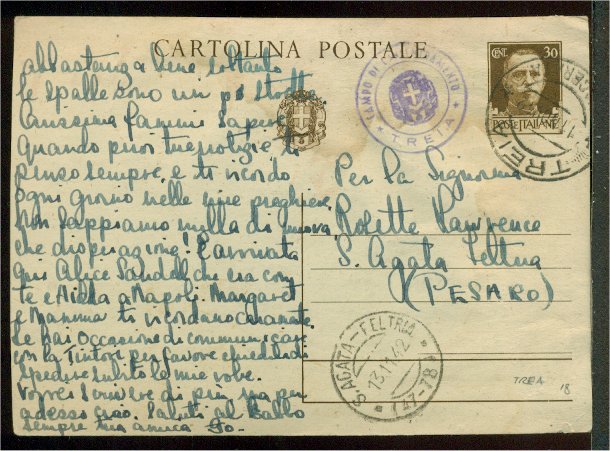 CARTOLINA POSTALE
CENT. 30
POSTE ITALIANE
CAMPO DI
TREIA
TREI
abbastanza bene soltanto
le spalle sono un po' storte
Carissima fammi sapere
quando puoi tue notizie ti
penso sempre e ti ricordo
ogni giorno nelle mie preghiere
Non sappiamo nulla di nuovo
che disperazione! È arrivata
qui Alice che era con
te e a Napoli. Margaret
e Mamma ti ricordano
Se hai occasione di comunicare
con la Tintori per favore chiedi di
spedire subito le mie robe.
Vorrei scrivere di più ma per
adesso ciao. Saluti al
sempre tua amica Jo-
Per la Signorina
Rosette Lawrence
S. Agata Feltria
(PESARO)
S.AGATA-FELTRIA
13.11.42
(47-78)
TREA 18